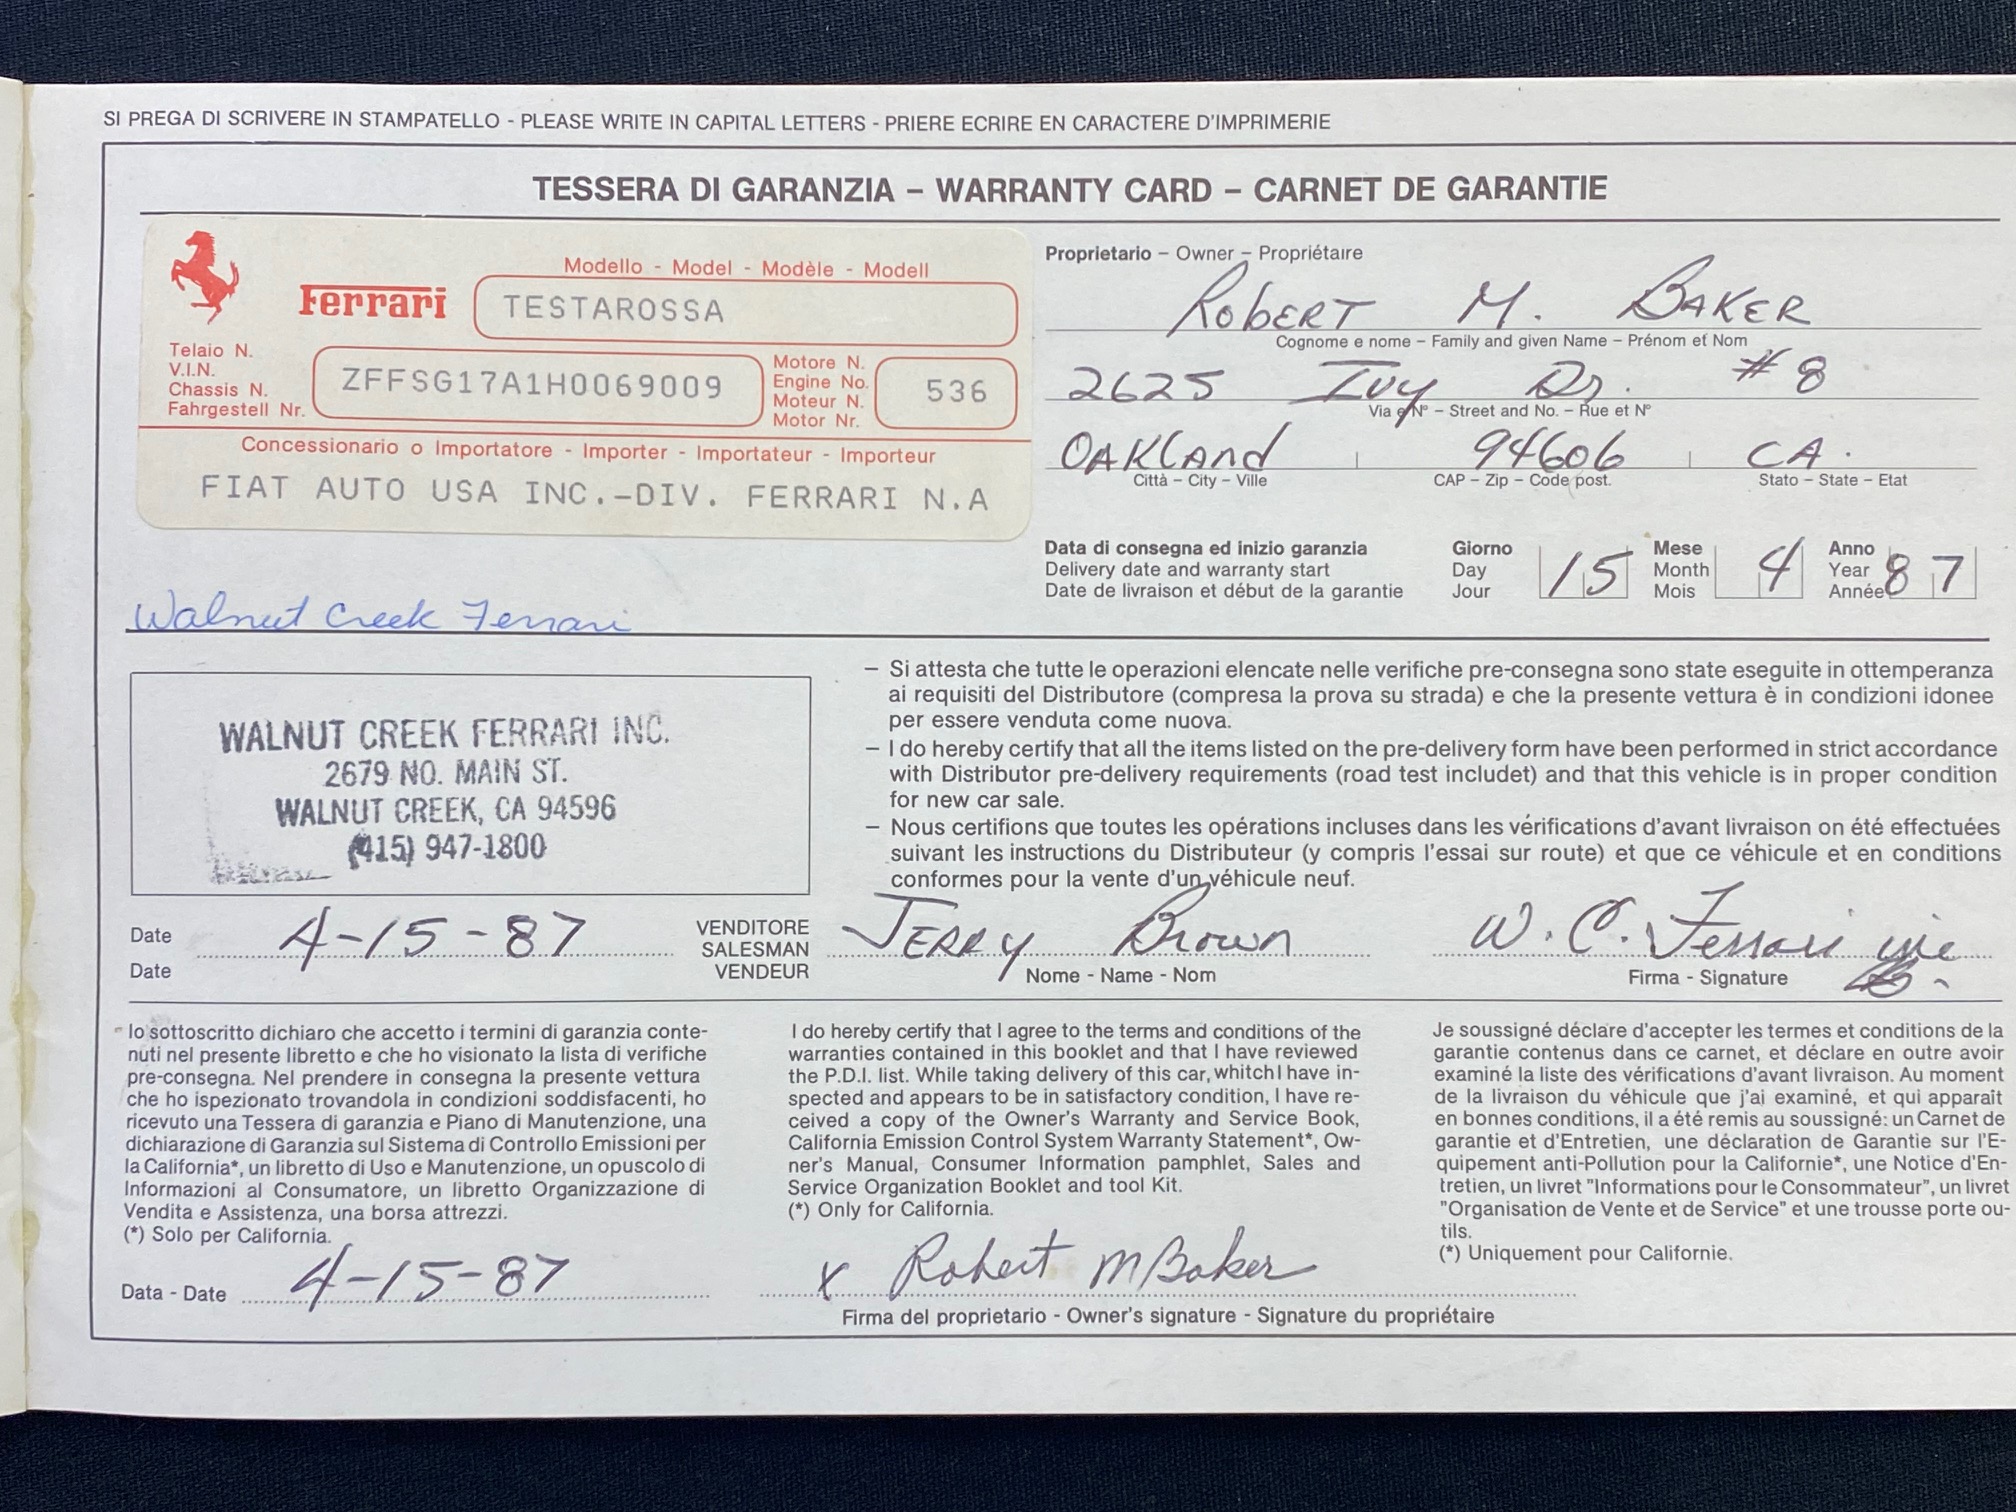 SI PREGA DI SCRIVERE IN STAMPATELLO - PLEASE WRITE IN CAPITAL LETTERS - PRIERE ECRIRE EN CARACTERE D'IMPRIMERIE
TESSERA DI GARANZIA – WARRANTY CARD – CARNET DE GARANTIE
Modello - Model - Modèle - Modell
Ferrari
TESTAROSSA
Telaio N.
V.I.N.
Chassis N.
Fahrgestell Nr.
ZFFSG17A1H0069009
Motore N.
Engine No.
Moteur N.
Motor Nr.
536
Concessionario o Importatore - Importer - Importateur - Importeur
FIAT AUTO USA INC.-DIV. FERRARI N.A
Walnut Creek Ferrari
Proprietario – Owner – Propriétaire
Robert M. Baker
Cognome e nome – Family and given Name – Prénom et Nom
2625 Ivy Dr. #8
Via e N° – Street and No. – Rue et N°
Oakland 94606 CA.
Città – City – Ville CAP – Zip – Code post. Stato – State – Etat
Data di consegna ed inizio garanzia
Delivery date and warranty start
Date de livraison et début de la garantie
Giorno
Day
Jour
15
Mese
Month
Mois
4
Anno
Year
Année
87
WALNUT CREEK FERRARI INC.
2679 NO. MAIN ST.
WALNUT CREEK, CA 94596
(415) 947-1800
– Si attesta che tutte le operazioni elencate nelle verifiche pre-consegna sono state eseguite in ottemperanza
ai requisiti del Distributore (compresa la prova su strada) e che la presente vettura è in condizioni idonee
per essere venduta come nuova.
– I do hereby certify that all the items listed on the pre-delivery form have been performed in strict accordance
with Distributor pre-delivery requirements (road test includet) and that this vehicle is in proper condition
for new car sale.
– Nous certifions que toutes les opérations incluses dans les vérifications d'avant livraison on été effectuées
suivant les instructions du Distributeur (y compris l'essai sur route) et que ce véhicule et en conditions
conformes pour la vente d'un véhicule neuf.
Date
Date
4-15-87
VENDITORE
SALESMAN
VENDEUR
Jerry Brown
Nome - Name - Nom
W. C. Ferrari
Firma - Signature
Io sottoscritto dichiaro che accetto i termini di garanzia conte-
nuti nel presente libretto e che ho visionato la lista di verifiche
pre-consegna. Nel prendere in consegna la presente vettura
che ho ispezionato trovandola in condizioni soddisfacenti, ho
ricevuto una Tessera di garanzia e Piano di Manutenzione, una
dichiarazione di Garanzia sul Sistema di Controllo Emissioni per
la California*, un libretto di Uso e Manutenzione, un opuscolo di
Informazioni al Consumatore, un libretto Organizzazione di
Vendita e Assistenza, una borsa attrezzi.
(*) Solo per California.
I do hereby certify that I agree to the terms and conditions of the
warranties contained in this booklet and that I have reviewed
the P.D.I. list. While taking delivery of this car, whitch I have in-
spected and appears to be in satisfactory condition, I have re-
ceived a copy of the Owner's Warranty and Service Book,
California Emission Control System Warranty Statement*, Ow-
ner's Manual, Consumer Information pamphlet, Sales and
Service Organization Booklet and tool Kit.
(*) Only for California.
Je soussigné déclare d'accepter les termes et conditions de la
garantie contenus dans ce carnet, et déclare en outre avoir
examiné la liste des vérifications d'avant livraison. Au moment
de la livraison du véhicule que j'ai examiné, et qui apparaît
en bonnes conditions, il a été remis au soussigné: un Carnet de
garantie et d'Entretien, une déclaration de Garantie sur l'E-
quipement anti-Pollution pour la Californie*, une Notice d'En-
tretien, un livret "Informations pour le Consommateur", un livret
"Organisation de Vente et de Service" et une trousse porte ou-
tils.
(*) Uniquement pour Californie.
Data - Date 4-15-87
x Robert M Baker
Firma del proprietario - Owner's signature - Signature du propriétaire